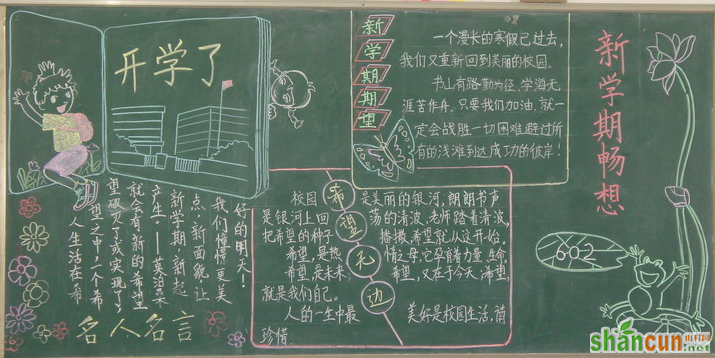 开学了
新学期期望
一个漫长的寒假已过去,
我们又重新回到美丽的校园。
书山有路勤为径,学海无
涯苦作舟。只要我们加油,就一
定会战胜一切困难避过所
有的浅滩到达成功的彼岸!
新学期畅想
602
人生活在希
望之中,一个希
望破灭了或实现了,
就会有新的希望
产生。——莫泊桑
新学期,新起
点,新面貌,让
我们憧憬更美
好的明天!
名人名言
希望无边
校园是美丽的银河,朗朗书声
是银河上回荡的清波,老师踏着清波,
把希望的种子播撒,希望就从这开始。
希望,是热情之母,它孕育力量,生命。
希望,是未来,希望,又在于今天,希望,
就是我们自己。
人的一生中最美好是校园生活,请
珍惜
shancun
.net